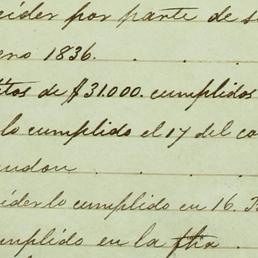 cider por parte de s
ero 1836. . .
itos de $31.000. cumplidos
lo cumplido el 17 del co
endon .
ider lo cumplido en 16.
umplido en la fha .